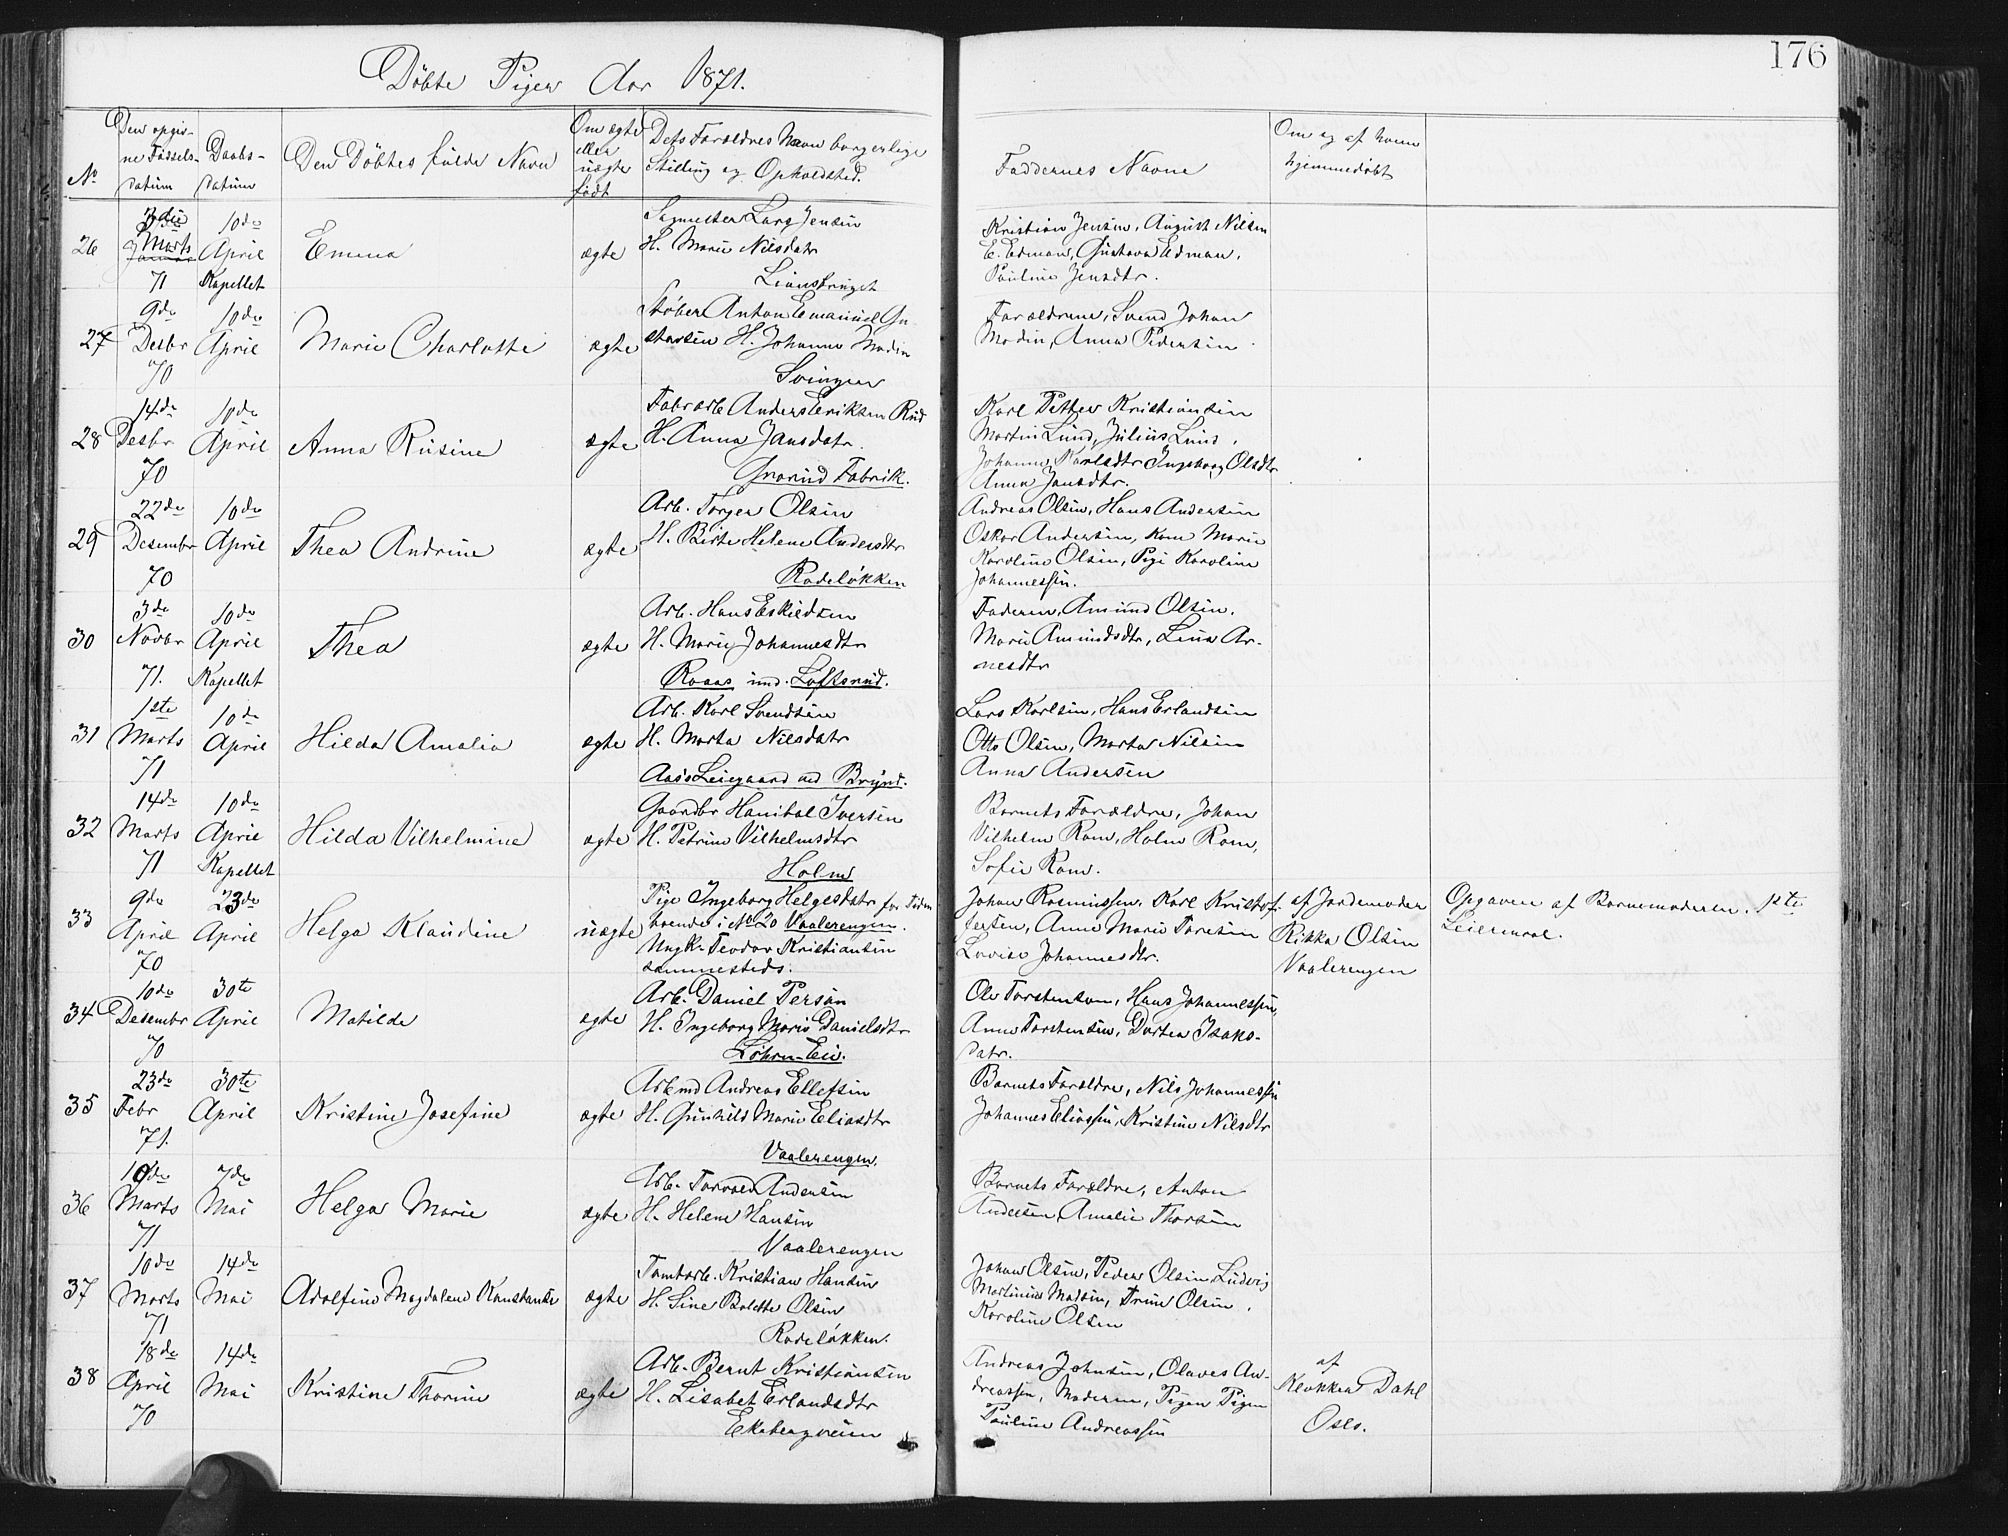 176
Döbte Piger Aar 1871.
No
Den opgiv-
ne Födsels-
datum
Daabs-
datum
Den Döbtes fulde Navn
Om ægte
eller
uægte
födt
Dets Forældres Navn borgerlige
Stilling og Opholdsted.
Faddernes Navne
Om og af hvem
hjemmedöbt
26
Marts
Januar
71
10de
April
Kapellet
Emma
ægte
Lars Jensen
H. Marie Nilsdatr
Kristian Jensen, August Nilsen
E. Edman, Gustava Edman,
Pauline Jensdtr.
27
9de
Desbr
70
10de
April
Marie Charlotte
ægte
Støber Anton Emanuel Gu-
stavsen H. Johanne Modin
Svingen
Forældrene, Svend Johan
Modin, Anna Pedersen
28
14de
Desbr
70
10de
April
Anna Rusine
ægte
Fabrarb Anders Eriksen Rud
H. Anna Jansdatr.
Grorud Fabrik.
Karl Petter Kristiansen
Martin Lund, Julius Lund,
Johanne Karlsdtr Ingeborg Olsdtr
Anna Jansdtr.
29
22de
Desembr
70
10de
April
Thea Andrine
ægte
Arb. Torger Olsen
H. Birte Helene Andersdtr
Rodeløkken
Andreas Olsen, Hans Andersen
Oskar Andersen, Kone Marie
Karoline Olsen, Pige Karoline
Johannessen.
30
3de
Novbr
71.
10de
April
Kapellet
Thea
ægte
Arb. Hans Eskildsen
H. Marie Johannesdtr
Roaas und. Loftsrud.
Faderen, Amund Olsen,
Marie Amundsdtr, Lina Ar-
nesdtr
31
1ste
Marts
71
10de
April
Hilda Amalia
ægte
Arb. Karl Svendsen
H. Marta Nilsdatr
Aas's Leiegaard ved Bryn.
Lars Karlsen, Hans Erlandsen
Otto Olsen, Marta Nilsen
Anna Andersen
32
14de
Marts
71
10de
April
Kapellet
Hilda Vilhelmine
ægte
Gaardbr Hanibal Iversen
H. Petrine Vilhelmsdtr
Holm
Barnets Forældre, Johan
Vilhelm Ram, Holm Ram,
Sofie Ram.
33
9de
April
70
23de
April
Helga Klaudine
uægte
Pige Ingeborg Helgesdatr for Tiden
boende i No 20 Vaalerengen.
Ungk. Teodor Kristiansen
sammesteds.
Johan Rasmussen, Karl Kristof-
fersen, Anne Marie Toresen
Lovise Johannesdtr.
af Jordemoder
Rikka Olsen
Vaalerengen
Opgaven af Barnemoderen. 1ste
Leiermaal.
34
10de
Desembr
70
30te
April
Matilde
ægte
Arb. Daniel Persøn
H. Ingeborg Marie Danielsdtr
Løhren Eie.
Ole Torstensen, Hans Johannessen,
Anne Torstensen, Dortea Isaks-
datr.
35
23de
Febr
71.
30te
April
Kristine Josefine
ægte
Arbmd Andreas Ellefsen
H. Gunhild Marie Eliasdtr
Vaalerengen.
Barnets Forældre, Nils Johannessen
Johannes Eliassen, Kristine Nilsdtr
36
10de
Marts
71
7de
Mai
Helga Marie
ægte
Arb. Torvald Andersen
H. Helene Hansen
Vaalerengen
Barnets Forældre, Anton
Andersen, Amalie Thorsen
37
10de
Marts
71
14de
Mai
Adolfine Magdalene Konstanse
ægte
Tomtarb. Kristian Hansen
H. Sine Bolette Olsen
Rodeløkken.
Johan Olsen, Peder Olsen, Ludvig
Martinius Madsen, Trine Olsen,
Karoline Olsen
38
18de
April
70
14de
Mai
Kristine Thorine
ægte
Arb. Bernt Kristiansen
H. Lisabet Erlandsdtr
Ekebergveien
Andreas Johnsen, Olaves An-
dreassen, Moderen, Pigen
Pauline Andreassen
af
Klokker Dahl
Oslo.